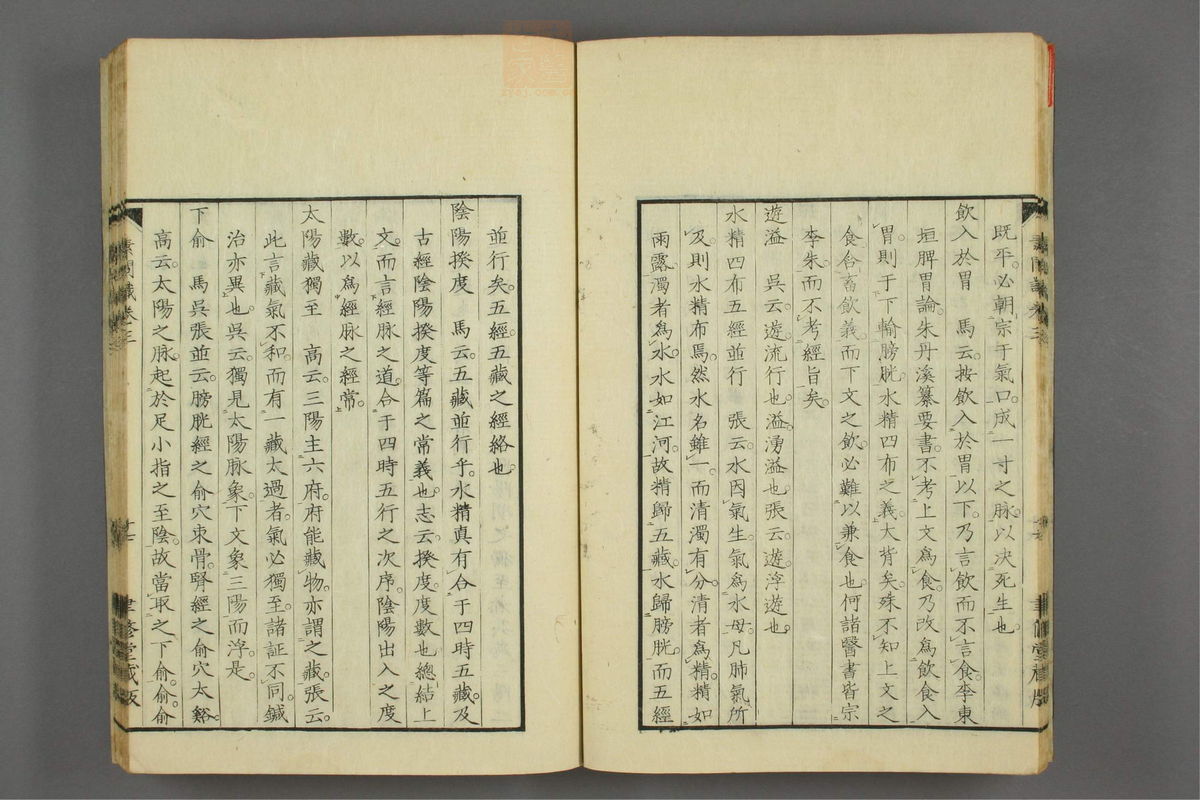 既平。必朝宗于氣口。成一寸之脉。以決死生也
飲入於胃　馬云。按飲入於胃以下。乃言飲而不言食。李東
垣脾胃論。朱丹溪纂要書。不考上文爲食。乃改爲飲食入
胃。則于下輸膀胱。水精四布之義。大背矣。殊不知上文之
食含畜飲義。而下文之飲。必難以兼食也。何諸醫書皆宗
李朱。而不考經旨矣。
遊溢　吳云。遊流行也。溢湧溢也。張云。遊浮遊也
水精四布五經並行　張云。水因氣生。氣爲水母。凡肺氣所
及。則水精布焉。然水名雖一。而清濁有分。清者爲精。精如
雨露。濁者爲水。水如江河。故精歸五藏。水歸膀胱。而五經
並行矣。五經五藏之經絡也。
陰陽揆度　馬云。五藏並行乎。水精真有合于四時五藏。及
古經陰陽揆度等篇之常義也。志云。揆度度數也。總結上
文。而言經脉之道。合于四時五行之次序。陰陽出入之度
數。以爲經脉之經常。
太陽藏獨至　高云。三陽主六府。府能藏物。亦謂之藏。張云。
此言藏氣不和。而有一藏太過者。氣必獨至。諸証不同。鍼
治亦異也。吳云。獨見太陽脉象。下文象三陽而浮。是。
下俞　馬吳張並云。膀胱經之俞穴束骨。腎經之俞穴太谿。
高云。太陽之脉。起於足小指之至陰。故當取之下俞。俞。俞
素問識卷三
聿修堂藏版